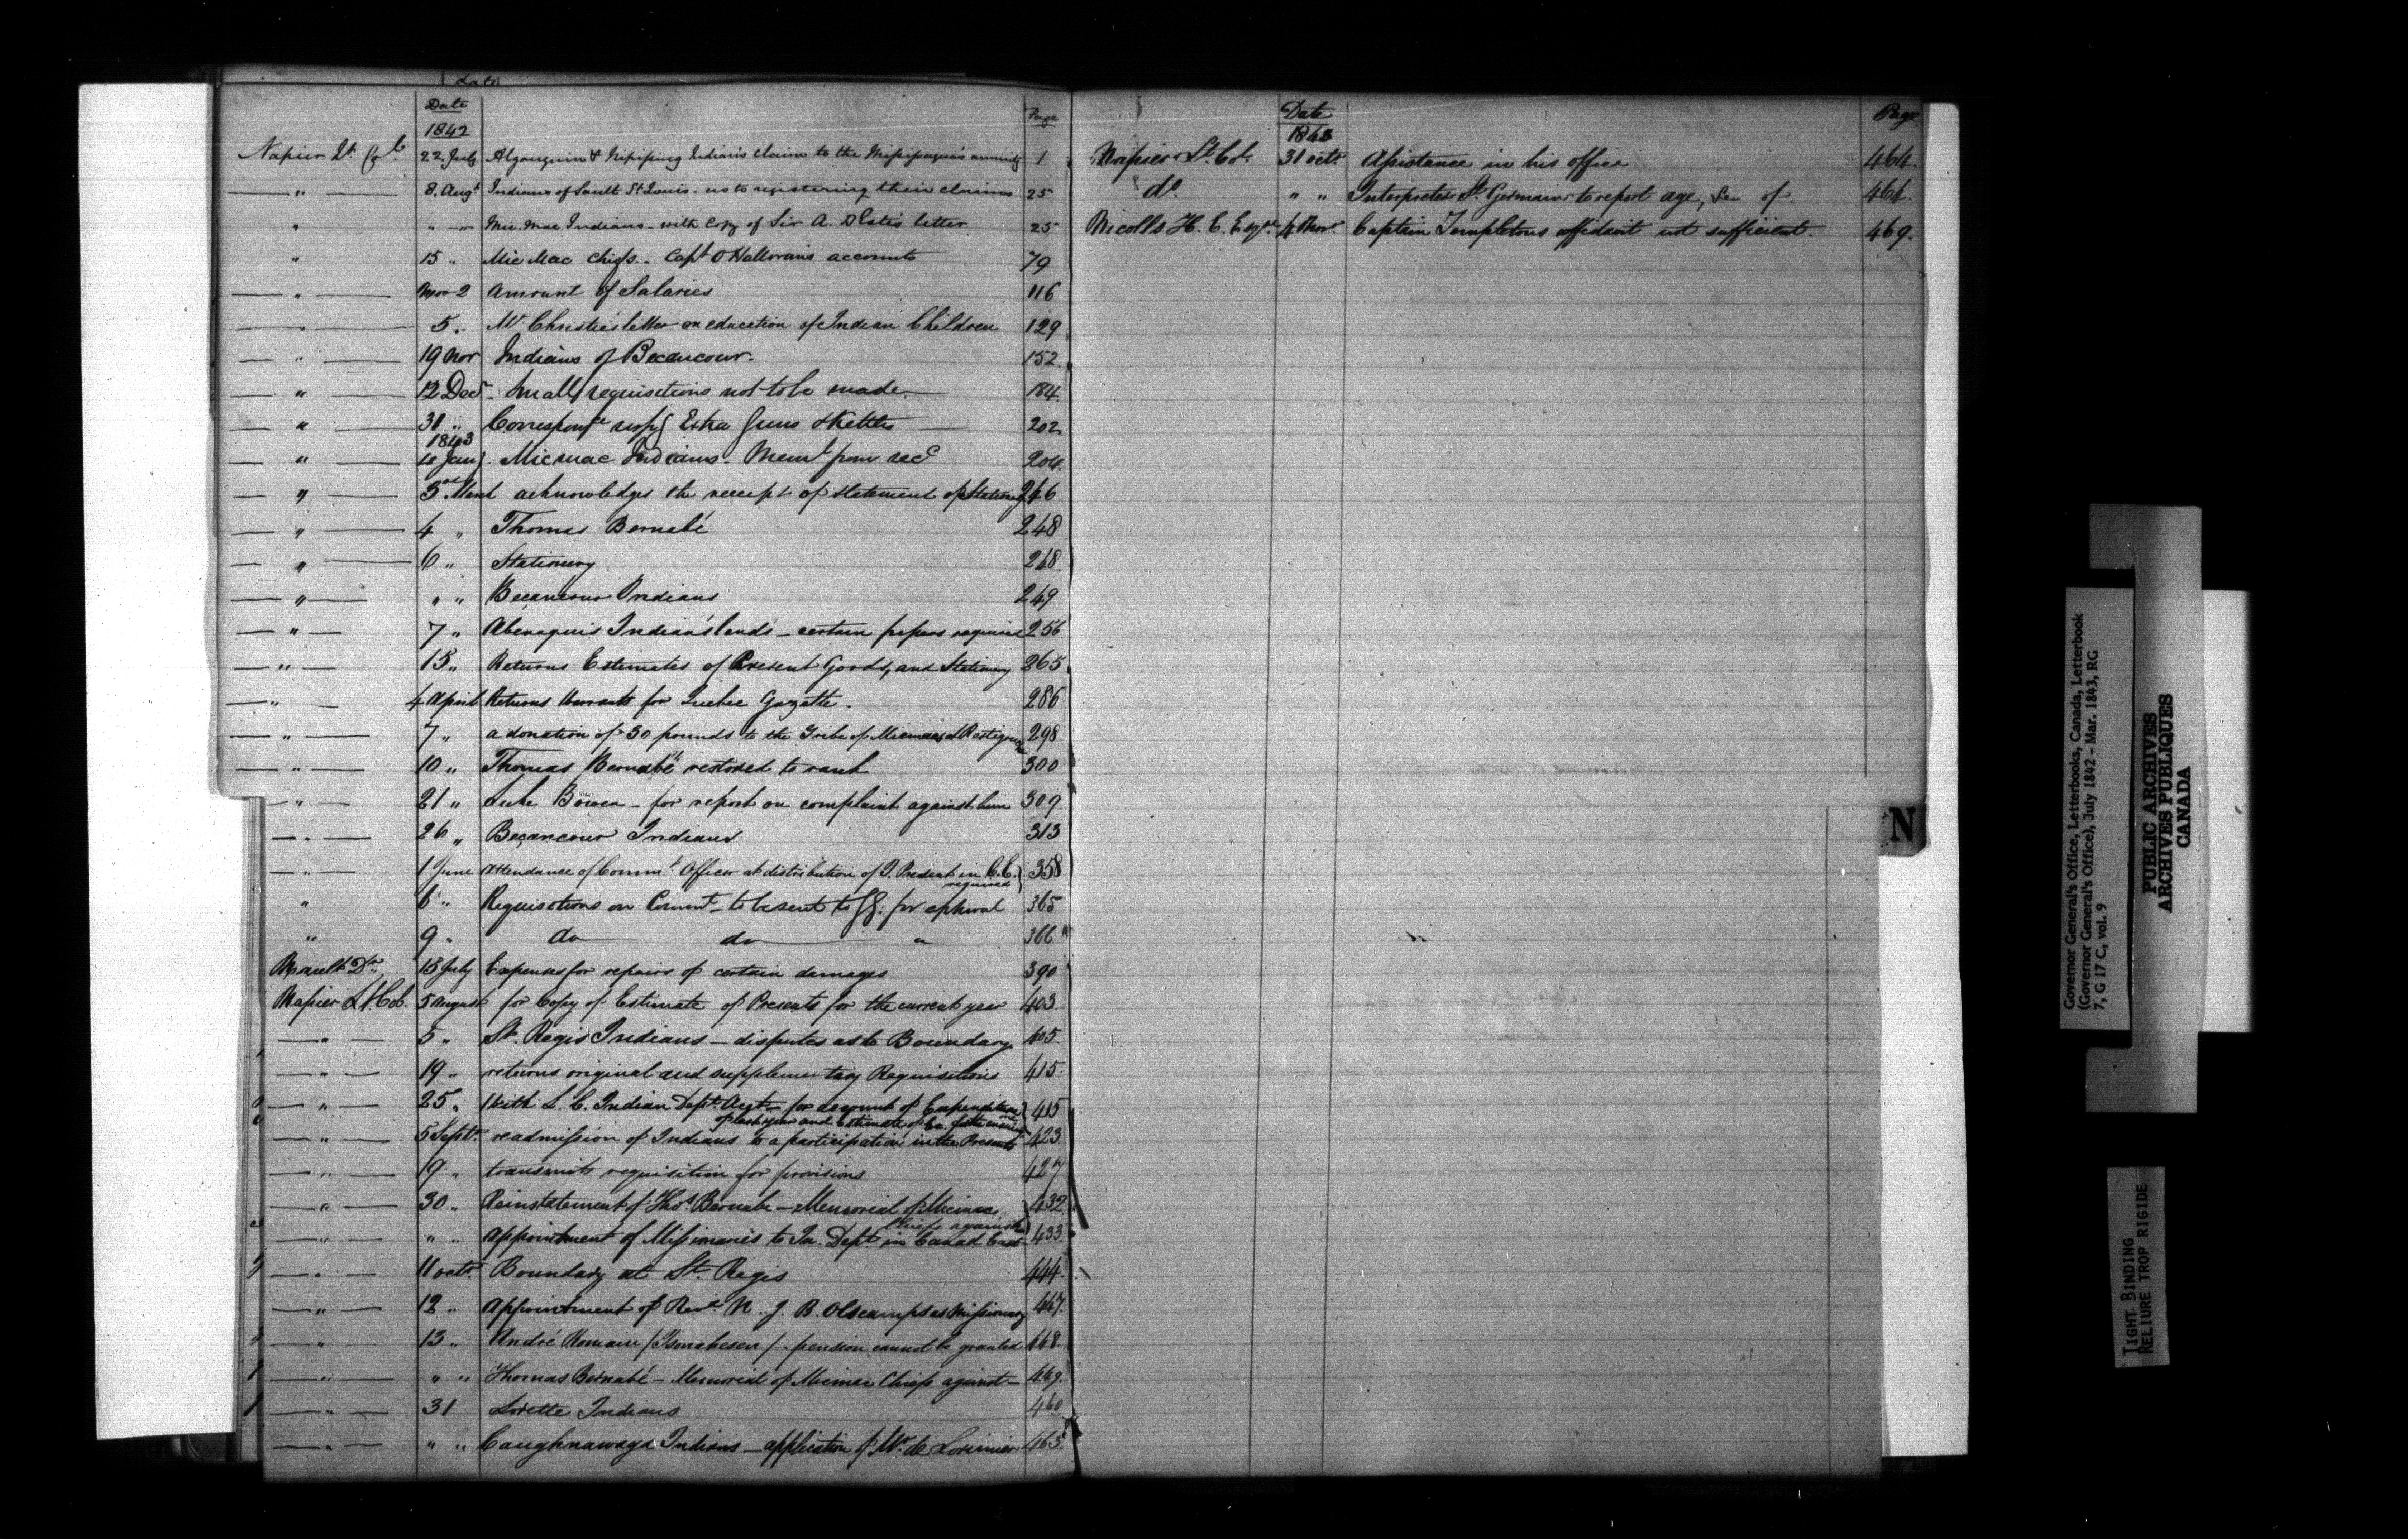 Date
Date Page
1842
Napier Lt. Col. 22 July Algonquin & Nipissing Indians claim to the Mississagua's annuity 1
" 8. Augt Indians of Sault St Louis - as to registering their claims 25
" " " Mic. Mac Indians - with Copy of Sir A. letter 25
" 15 " Mic Mac Chiefs - Capt O'Halloran's accounts 79
" Nov 2 Amount of Salaries 116
" 5 " Mr Christie's letter on education of Indian Children 129
" 19 Nov Indians of Becancour 152
" 12 Decr Small requisitions not to be made 184
" 31 " Correspce respg Extra Guns & Kettles 202
1843
" 10 Jany. Micmac Indians - Memt from recd 204
" 3rd March acknowledges the receipt of statement of Stationery 246
" 4 " Thomas Bernabé 248
" 6 " Stationery 248
" " " Becancour Indians 249
" 7 " Abenaquis Indian's lands - certain papers required 256
" 15 " Returns Estimates of Present Goods, and Stationery 265
" 4 April Returns Warrants for Quebec Gazette. 286
" 7 " a donation of 30 pounds to the Tribe of Micmacs at Restigouche 298
" 10 " Thomas Bernabé restored to rank 300
" 21 " Luke Bowen - for report on complaint against him 309
" 26 " Beçancour Indians 313
" 1 June Attendance of Commt. Officer at distribution of I. Present in C.E. 358
required
" 6 " Requisitions on Commt - to be sent to G.G. for aproval 365
" 9 " do do " 366
Dr. 15 July Expenses for repairs of certain damages 390
Napier Lt. Col. 5 August for Copy of Estimate of Presents for the current year 403
" 5 " St. Regis Indians - disputes as to Boundary 405
" 19 " returns original and supplementary Requisitions 415
" 25 " With L. C. Indian Dept. Acct - for account of Expenditure 415
of last year and Estimate of Do. for the ensuing
" 5 Septr. readmission of Indians to a participation in the Presents 423
" 19 " transmits requisition for provisions 427
" 30 " Reinstatement of Thos. Bernabe - Memorial of Micmac 432
Chiefs against
" " " appointment of Missionaries to In. Dept. in Canad East 433
" 11 octr. Boundary at St. Regis 444
" 12 " Appointment of Revd. N. J. B. Olscamps as Missionary 447
" 13 " André Romain / Tsonahesen / - pension cannot be granted 448
" " " Thomas Bernabé - Memorial of Micmac Chiefs against - 449
" 31 Lorette Indians 460
" " " Caughnawaga Indians - application of Mr. de Lorimier 463
Date Page
1843
Napier Lt. Col. 31 octr. Assistance in his office 464
do. " " Interpreter St. Germain to report age, &c of. 464
Nicolls H. C. Esqre. 4 Novr. Captain Templetons affidavit not sufficient. 469.
N
Governor General's Office, Letterbooks, Canada, Letterbook
(Governor General's Office), July 1842 - Mar. 1843, RG
7, G 17 C, vol. 9
PUBLIC ARCHIVES
ARCHIVES PUBLIQUES
CANADA
TIGHT BINDING
RELIURE TROP RIGIDE